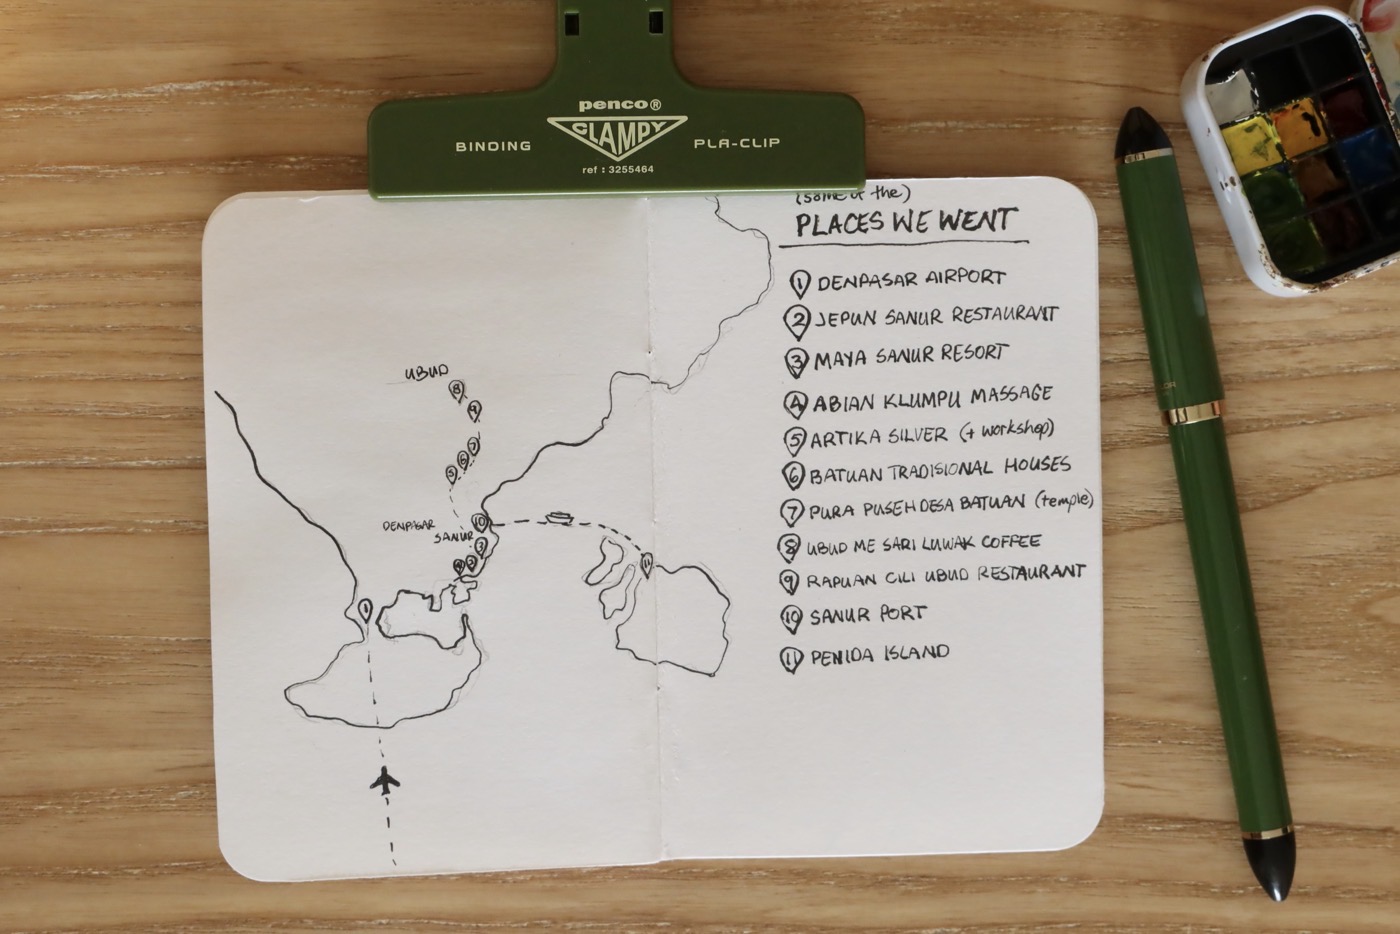 penco®
BINDING CLAMPY PLA-CLIP
ref : 3255464
(some of the)
PLACES WE WENT
1 DENPASAR AIRPORT
2 JEPUN SANUR RESTAURANT
3 MAYA SANUR RESORT
4 ABIAN KLUMPU MASSAGE
5 ARTIKA SILVER (+ workshop)
6 BATUAN TRADISIONAL HOUSES
7 PURA PUSEH DESA BATUAN (temple)
8 UBUD ME SARI LUWAK COFFEE
9 RAPUAN CILI UBUD RESTAURANT
10 SANUR PORT
11 PENIDA ISLAND
UBUD
8
9
7
6
5
DENPASAR
10
SANUR
3
2
4
1
11